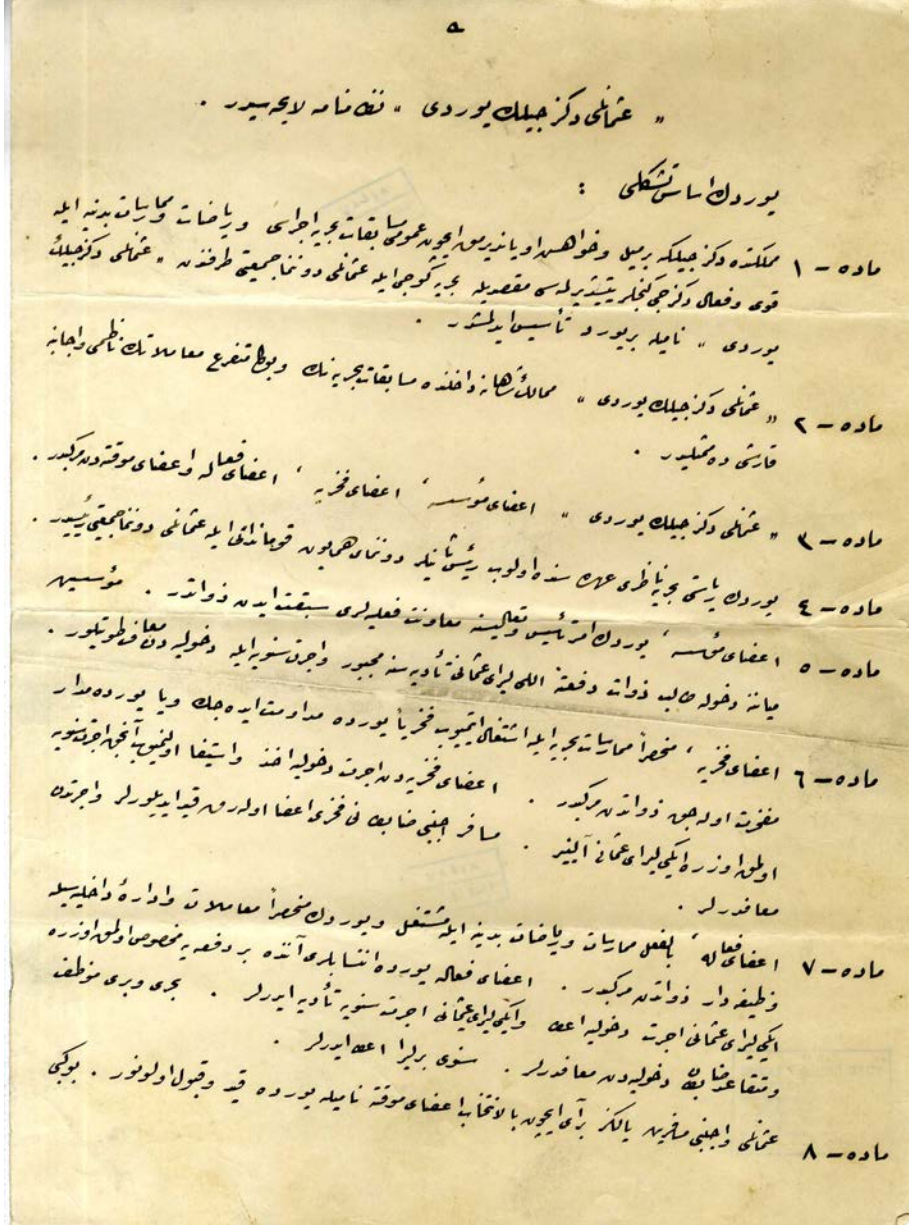 ﻫ
« عثمانلی دكزجیلك یوردی » نظامنامه لایحه سیدر .
یوردك اساس تشكلی :
ماده – ١ مملكتده دكزجیلكه بر میل و خواهش اویاندیرمق ایچون عمومی مسابقات بحریه اجراسی و ریاضات و ممارسات بدنیه ایله
قوی و فعال دكزجی كنجلر یتیشدیرلمسی مقصدیله بحریه كوجی ایله عثمانلی دوننما جمعیتی طرفندن « عثمانلی دكزجیلك
یوردی » نامیله بر یورد تأسیس ایدلمشدر .
ماده – ٢ « عثمانلی دكزجیلك یوردی » ممالك شاهانه داخلنده مسابقات بحریه نك و بوكا متفرع معاملاتك ناظمی و اجانبه
قارشی ده ممثلیدر .
ماده – ٣ « عثمانلی دكزجیلك یوردی » اعضای مؤسسه ، اعضای فخریه ، اعضای فعاله و اعضای موقته دن مركبدر .
ماده – ٤ یوردك ریاستی بحریه ناظری عهده سنده اولوب رئیس ثانیلر دوننمای همایون قوماندانی ایله عثمانلی دوننما جمعیتی رئیسیدر .
ماده – ٥ اعضای مؤسسه ، یوردك امر تأسیس و تعالیسنه معاونت فعلیه لری سبقت ایدن ذواتدر . مؤسسین
میاننه دخوله طالب ذوات دفعةً اللی لیرای عثمانی تأدیه سنه مجبور و اجرت سنویه ایله دخولیه دن معاف طوتیلور .
ماده – ٦ اعضای فخریه ، منحصراً ممارسات بحریه ایله اشتغال ایتمیوب فخریاً یورده مداومت ایده جك و یا یورده مدار
مفخرت اوله جق ذواتدن مركبدر . اعضای فخریه دن اجرت دخولیه اخذ و استیفا اولنمیوب آنجق اجرت سنویه
اولمق اوزره ایكی لیرای عثمانی آلینیر . مسافر اجنبی ضابطانی فخری اعضا اولارق قید ایدیلورلر و اجرتدن
معافدرلر .
ماده – ٧ اعضای فعاله ، بالفعل ممارسات و ریاضات بدنیه ایله مشتغل و یوردك منحصراً معاملات و ادارۀ داخلیه سیله
وظیفه دار ذواتدن مركبدر . اعضای فعاله یورده انتسابلری آننده بر دفعه یه مخصوص اولمق اوزره
ایكی لیرای عثمانی اجرت دخولیه اعطا و ایكی لیرای عثمانی اجرت سنویه تأدیه ایدرلر . بحری و بری موظف
و متقاعد ضابطان دخولیه دن معافدرلر . سنوی بر لیرا اعطا ایدرلر .
ماده – ٨ عثمانلی و اجنبی مسافرین یالكز بر آی ایچون بالانتخاب اعضای موقته نامیله یورده قید و قبول اولونور . بوكبی